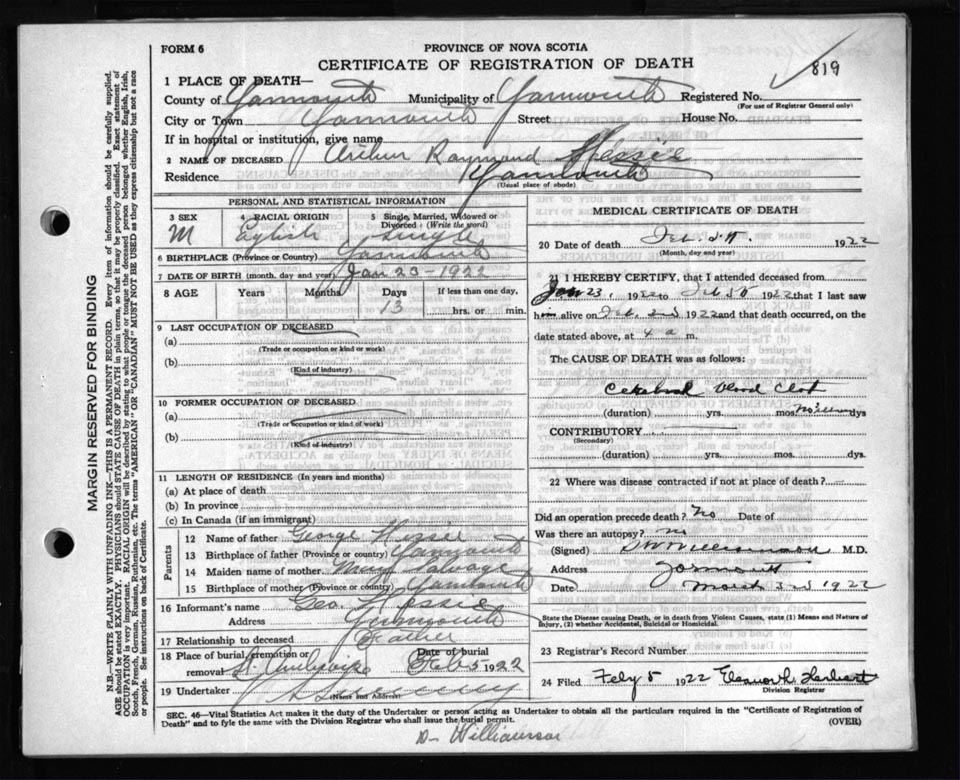 FORM 6
PROVINCE OF NOVA SCOTIA
CERTIFICATE OF REGISTRATION OF DEATH
819
1 PLACE OF DEATH—
County of Yarmouth Municipality of Yarmouth Registered No.
(For use of Registrar General only)
City or Town Yarmouth Street House No.
If in hospital or institution, give name
2 NAME OF DECEASED Arthur Raymond Hessie
Residence Yarmouth
(Usual place of abode)
PERSONAL AND STATISTICAL INFORMATION
3 SEX 4 RACIAL ORIGIN 5 Single, Married, Widowed or Divorced (Write the word)
M English Single
6 BIRTHPLACE (Province or Country) Yarmouth
7 DATE OF BIRTH (month, day and year) Jan 23-1922
8 AGE Years Months Days If less than one day,
13 hrs. or min.
9 LAST OCCUPATION OF DECEASED
(a)
(Trade or occupation or kind of work)
(b)
(Kind of industry)
10 FORMER OCCUPATION OF DECEASED
(a)
(Trade or occupation or kind of work)
(b)
(Kind of industry)
11 LENGTH OF RESIDENCE (In years and months)
(a) At place of death
(b) In province
(c) In Canada (if an immigrant)
Parents
12 Name of father George Hessie
13 Birthplace of father (Province or country) Yarmouth
14 Maiden name of mother Mary
15 Birthplace of mother (Province or country) Yarmouth
16 Informant's name Geo. Hessie
Address Yarmouth
17 Relationship to deceased Father
18 Place of burial, cremation or removal St. Ambroise Date of burial Feb 5 1922
19 Undertaker
(Name and Address)
MEDICAL CERTIFICATE OF DEATH
20 Date of death Feb. 5th. 1922
(Month, day and year)
21 I HEREBY CERTIFY, that I attended deceased from
Jan 23, 1922 to Feb 5th 1922 that I last saw
him alive on Feb. 2nd 1922 and that death occurred, on the
date stated above, at 4 a m.
The CAUSE OF DEATH was as follows:
Cerebral blood Clot
(duration) yrs. mos. dys
CONTRIBUTORY
(Secondary)
(duration) yrs. mos. dys.
22 Where was disease contracted if not at place of death?
Did an operation precede death? No Date of
Was there an autopsy? no
(Signed) Williamson M.D.
Address Yarmouth
Date March 3rd 1922
State the Disease causing Death, or in death from Violent Causes, state (1) Means and Nature of
Injury, (2) whether Accidental, Suicidal or Homicidal.
23 Registrar's Record Number
24 Filed Feby 5 1922 Herbert
Division Registrar
SEC. 46—Vital Statistics Act makes it the duty of the Undertaker or person acting as Undertaker to obtain all the particulars required in the "Certificate of Registration of
Death" and to fyle the same with the Division Registrar who shall issue the burial permit.
(OVER)
Dr Williamson
MARGIN RESERVED FOR BINDING
N.B.—WRITE PLAINLY WITH UNFADING INK—THIS IS A PERMANENT RECORD. Every item of information should be carefully supplied.
AGE should be stated EXACTLY. PHYSICIANS should STATE CAUSE OF DEATH in plain terms, so that it may be properly classified. Exact statement of
OCCUPATION is very important. RACIAL ORIGIN will be described by stating to what people or tongue the deceased person belonged whether English, Irish,
Scotch, French, German, Russian, Ruthenian, etc. The terms "AMERICAN" OR "CANADIAN" MUST NOT BE USED as they express citizenship but not a race
or people. See instructions on back of Certificate.